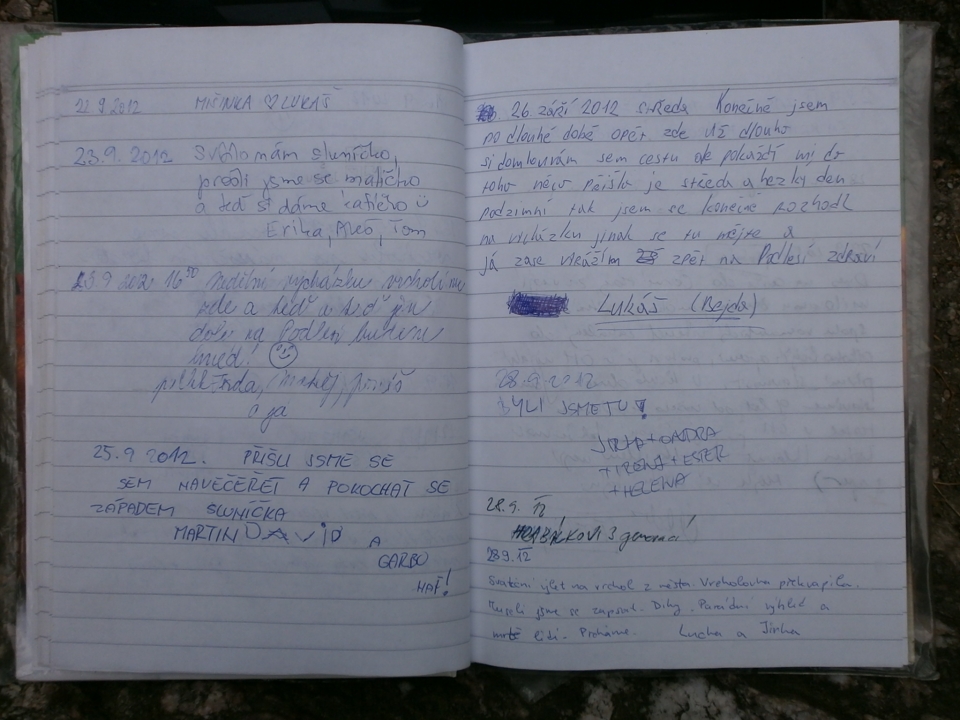 22.9.2012 MIŠINKA ♡ LUKÁŠ
23.9.2012 Světlo mám sluníčko,
prošli jsme se maličko
a teď si dáme kafíčko ☺
Erika, Aleš, Tom
23 9 2012 16 50 vycházku
zde a teď a teď
dolů na Podlesí
hned! ☺
a já
25.9 2012. PŘIŠLI JSME SE
SEM NAVEČEŘET A POKOCHAT SE
ZÁPADEM SLUNÍČKA
MARTIN DAVID A
GARBO
HAF!
26. září 2012 středa Konečně jsem
po dlouhé době opět zde Už dlouho
si domlouvám sem cestu ale pokaždé mi do
toho něco přišlo je středa a hezký den
podzimní tak jsem se konečně rozhodl
na vycházku jinak se tu mějte a
já zase vyrážím zpět na Podlesí zdraví
Lukáš (Bejda)
28.9.2012
BYLI JSME TU!
JIRKA + ONDRA
+ IRENA + ESTER
+ HELENA
28.9. 12
3 generací!
28 9. 12
Sváteční výlet na vrchol z města. Vrcholovka překvapila.
Museli jsme se zapsat. Díky. Parádní výhled a
lidí. Lucka a Jirka